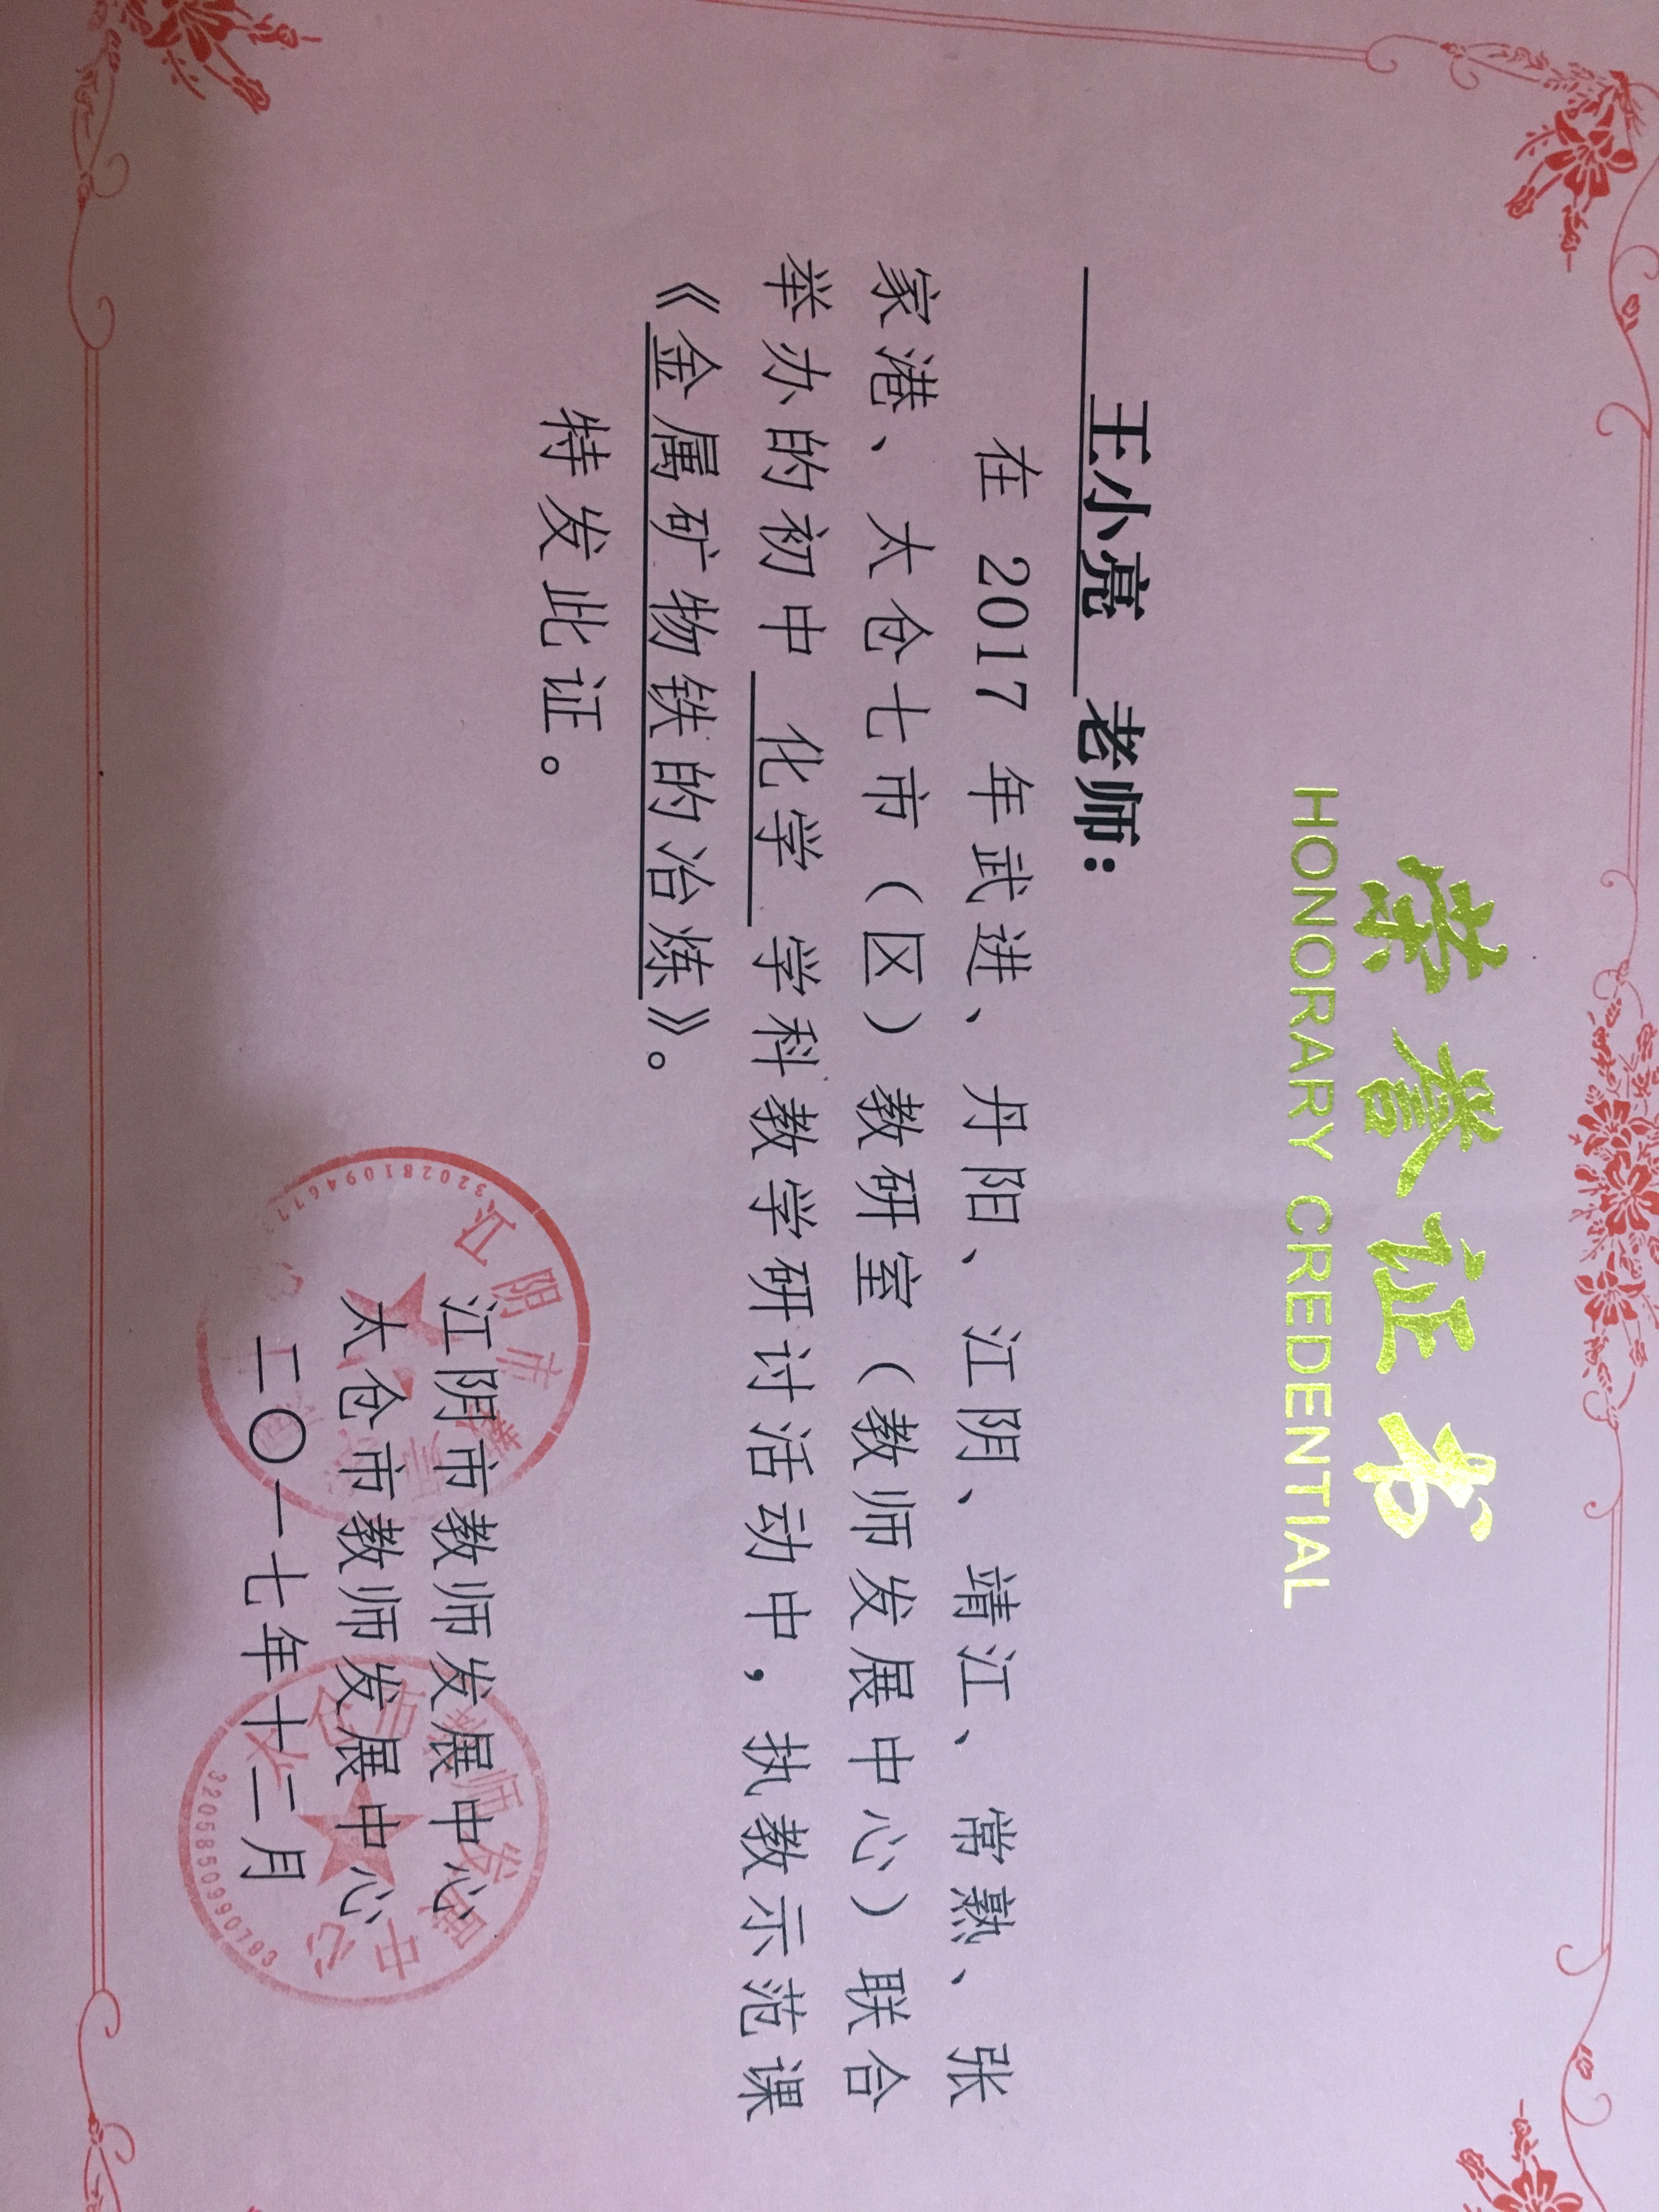 荣誉证书
HONORARY CREDENTIAL
王小亮 老师：
在 2017 年武进、丹阳、江阴、靖江、常熟、张
家港、太仓七市（区）教研室（教师发展中心）联合
举办的初中 化学 学科教学研讨活动中，执教示范课
《金属矿物铁的冶炼》。
特发此证。
江阴市教师发展中心
太仓市教师发展中心
二〇一七年十二月
江阴市
太仓
教师发展中心